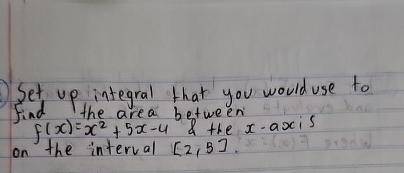 Set up integral that you would use to
find the area between
f(x)=x² + 5x-4 & the x-axis
on the interval [2,5].